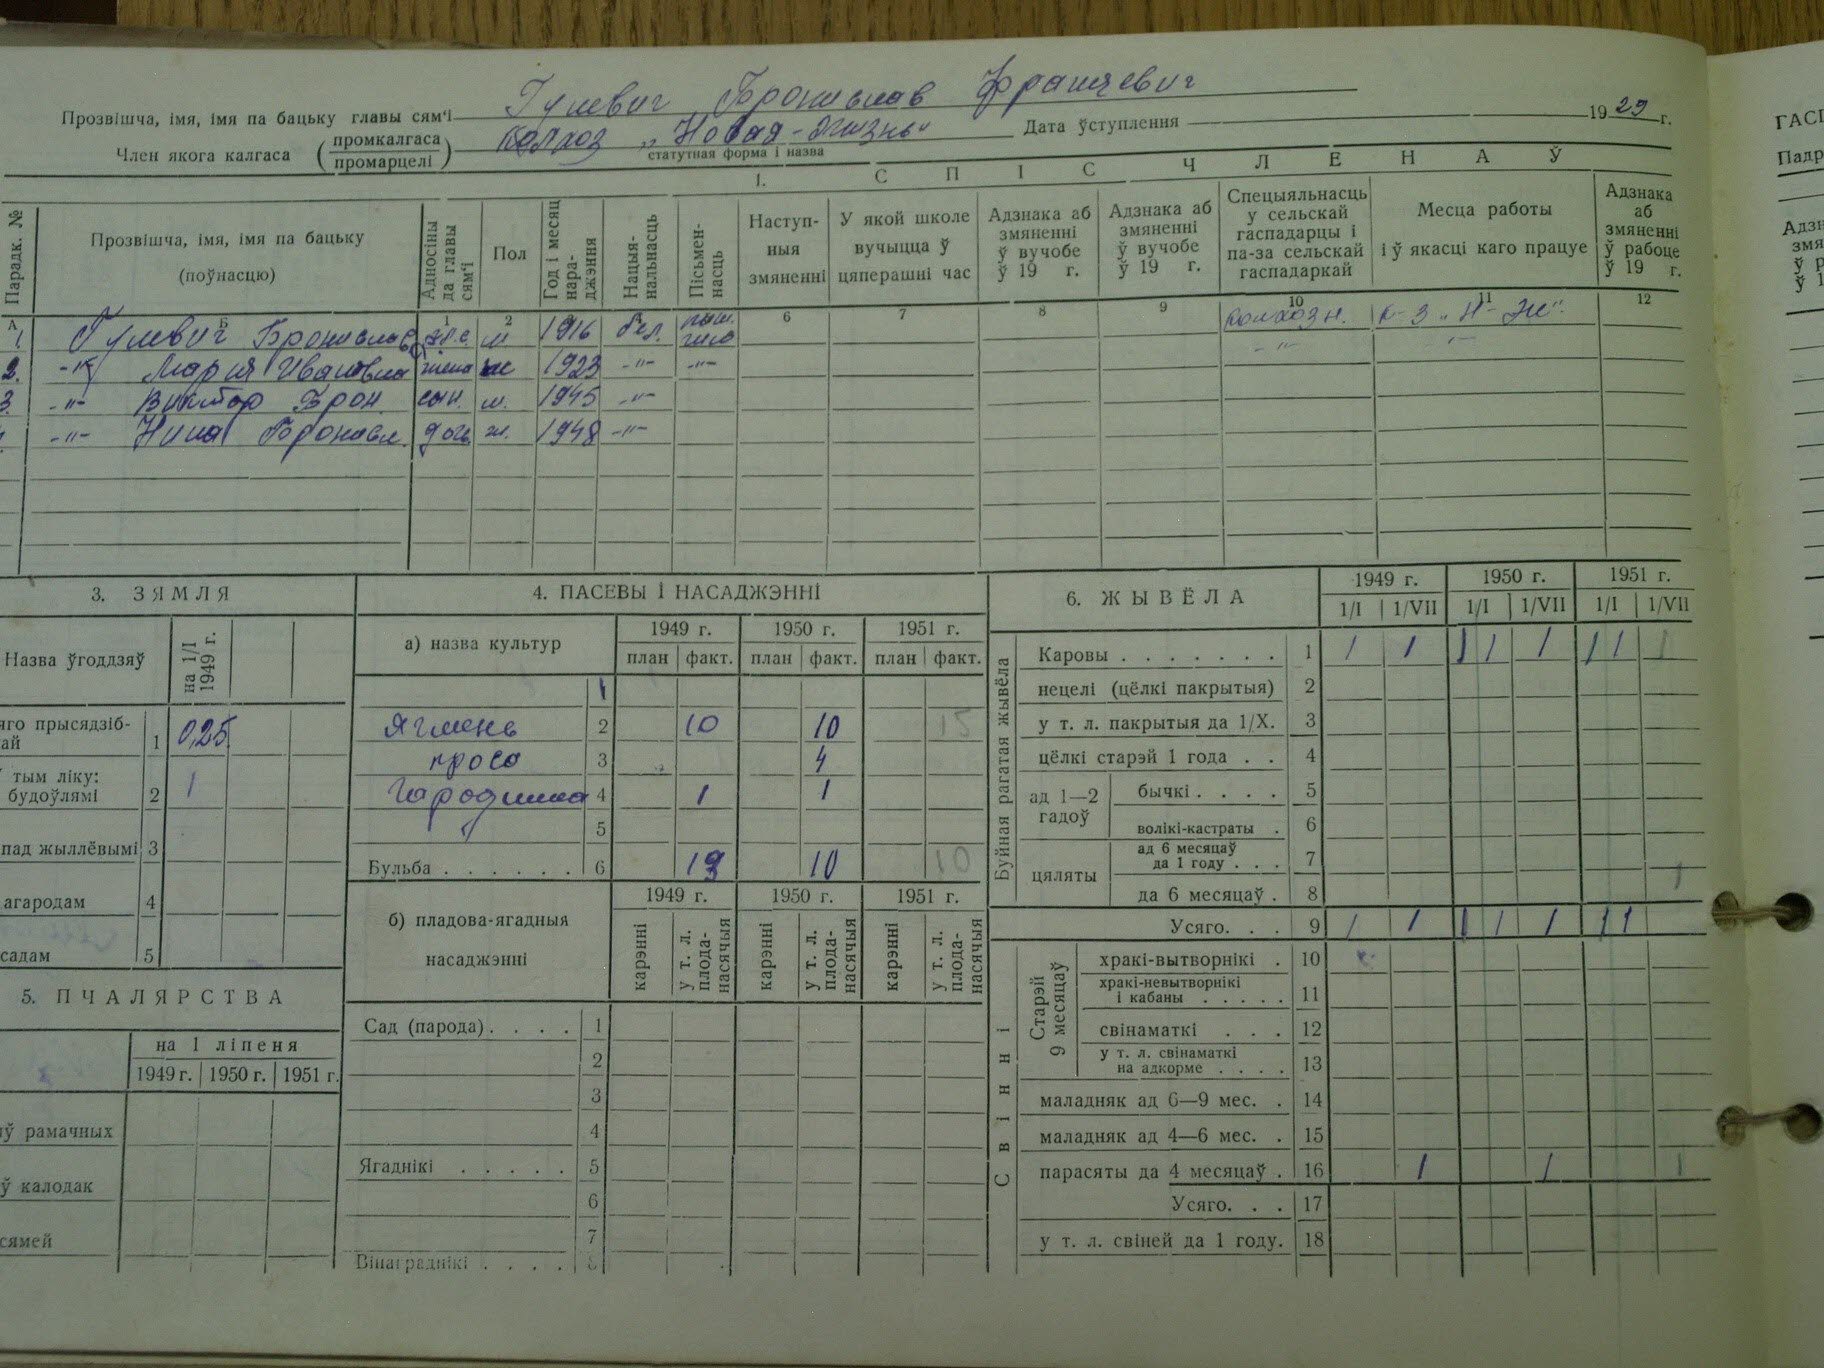 Прозвішча, імя, імя па бацьку главы сям'і Гулевич Бронислав Францевич
Член якога калгаса (промкалгаса / промарцелі) колхоз „Новая-жизнь“ Дата ўступлення 1929 г.
статутная форма і назва
1. СПІС ЧЛЕНАЎ
ГАСП
Парадк. № | Прозвішча, імя, імя па бацьку (поўнасцю) | Адносіны да главы сям'і | Пол | Год і месяц нараджэння | Нацыянальнасць | Пісьменнасць | Наступныя змяненні | У якой школе вучыцца ў цяперашні час | Адзнака аб змяненні ў вучобе ў 19 г. | Адзнака аб змяненні ў вучобе ў 19 г. | Спецыяльнасць у сельскай гаспадарцы і па-за сельскай гаспадаркай | Месца работы і ў якасці каго працуе | Адзнака аб змяненні ў рабоце ў 19 г.
А Б 1 2 6 7 8 9 10 11 12
1. Гулевич Бронислав м 1916 бел. колхозн. к-з „Н-Ж“.
2. -"- Мария Ивановна жена 1923 -"- -"- -"-
3. -"- Виктор Брон. сын. м. 1945 -"-
-"- Нина Бронисл. дочь ж. 1948 -"-
3. ЗЯМЛЯ
Назва ўгоддзяў | на 1/I 1949 г.
яго прысядзіб-
ай 1 0,25
тым ліку:
будоўлямі 2 1
пад жыллёвымі 3
агародам 4
садам 5
5. ПЧАЛЯРСТВА
на 1 ліпеня
1949 г. | 1950 г. | 1951 г.
ў рамачных
ў калодак
сямей
4. ПАСЕВЫ І НАСАДЖЭННІ
а) назва культур | 1949 г. | 1950 г. | 1951 г.
план | факт. | план | факт. | план | факт.
1
Ягмень 2 10 10 15
просо 3 4
Гародніна 4 1 1
5
Бульба . . . . . . 6 13 10 10
б) пладова-ягадныя насаджэнні | 1949 г. | 1950 г. | 1951 г.
карэнні | у т. л. плоданасячыя | карэнні | у т. л. плоданасячыя | карэнні | у т. л. плоданасячыя
Сад (парода) . . . . 1
2
3
4
Ягаднікі . . . . . 5
6
7
Вінаграднікі . . . . 8
6. ЖЫВЁЛА | 1949 г. | 1950 г. | 1951 г.
1/I | 1/VII | 1/I | 1/VII | 1/I | 1/VII
Буйная рагатая жывёла
Каровы . . . . . . . 1 1 1 1 1 1 1 1 1
нецелі (цёлкі пакрытыя) 2
у т. л. пакрытыя да 1/X. 3
цёлкі старэй 1 года . . 4
ад 1—2 гадоў
бычкі . . . . 5
волікі-кастраты . 6
цяляты
ад 6 месяцаў да 1 году . . . 7
да 6 месяцаў . 8 1
Усяго. . . 9 1 1 1 1 1 1 1
Свінні
Старэй 9 месяцаў
хракі-вытворнікі . 10
хракі-невытворнікі і кабаны . . . . . 11
свінаматкі . . . 12
у т. л. свінаматкі на адкорме . . . . 13
маладняк ад 6—9 мес. . 14
маладняк ад 4—6 мес. . 15
парасяты да 4 месяцаў . 16 1 1 1
Усяго. . . 17
у т. л. свіней да 1 году. 18